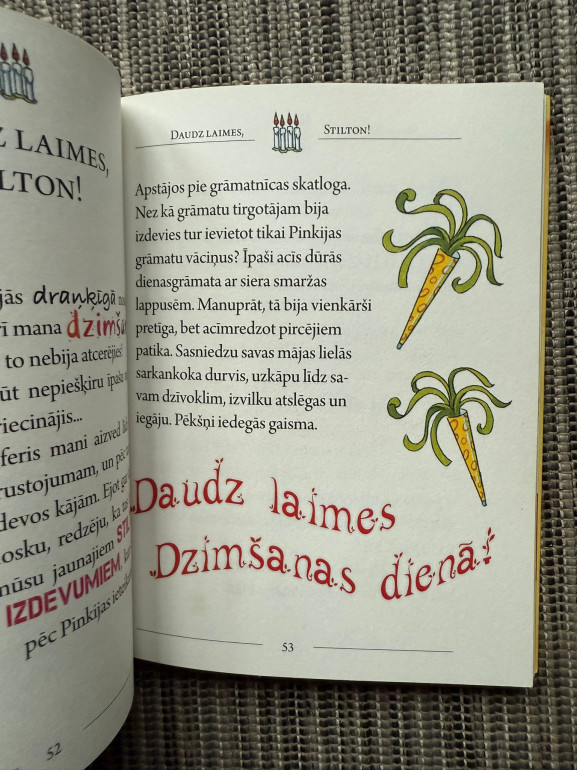 LAIMES,
TON!
draņķīgā
mana dzimša
to nebija atcerējies!
nepiešķiru īpašu
mani aizved
un pēc
kājām. Ejot
redzēju, ka
jaunajiem
IZDEVUMIEM,
pēc Pinkijas
52
DAUDZ LAIMES, STILTON!
Apstājos pie grāmatnīcas skatloga.
Nez kā grāmatu tirgotājam bija
izdevies tur ievietot tikai Pinkijas
grāmatu vāciņus? Īpaši acīs dūrās
dienasgrāmata ar siera smaržas
lappusēm. Manuprāt, tā bija vienkārši
pretīga, bet acīmredzot pircējiem
patika. Sasniedzu savas mājas lielās
sarkankoka durvis, uzkāpu līdz sa-
vam dzīvoklim, izvilku atslēgas un
iegāju. Pēkšņi iedegās gaisma.
Daudz laimes
Dzimšanas dienā!
53